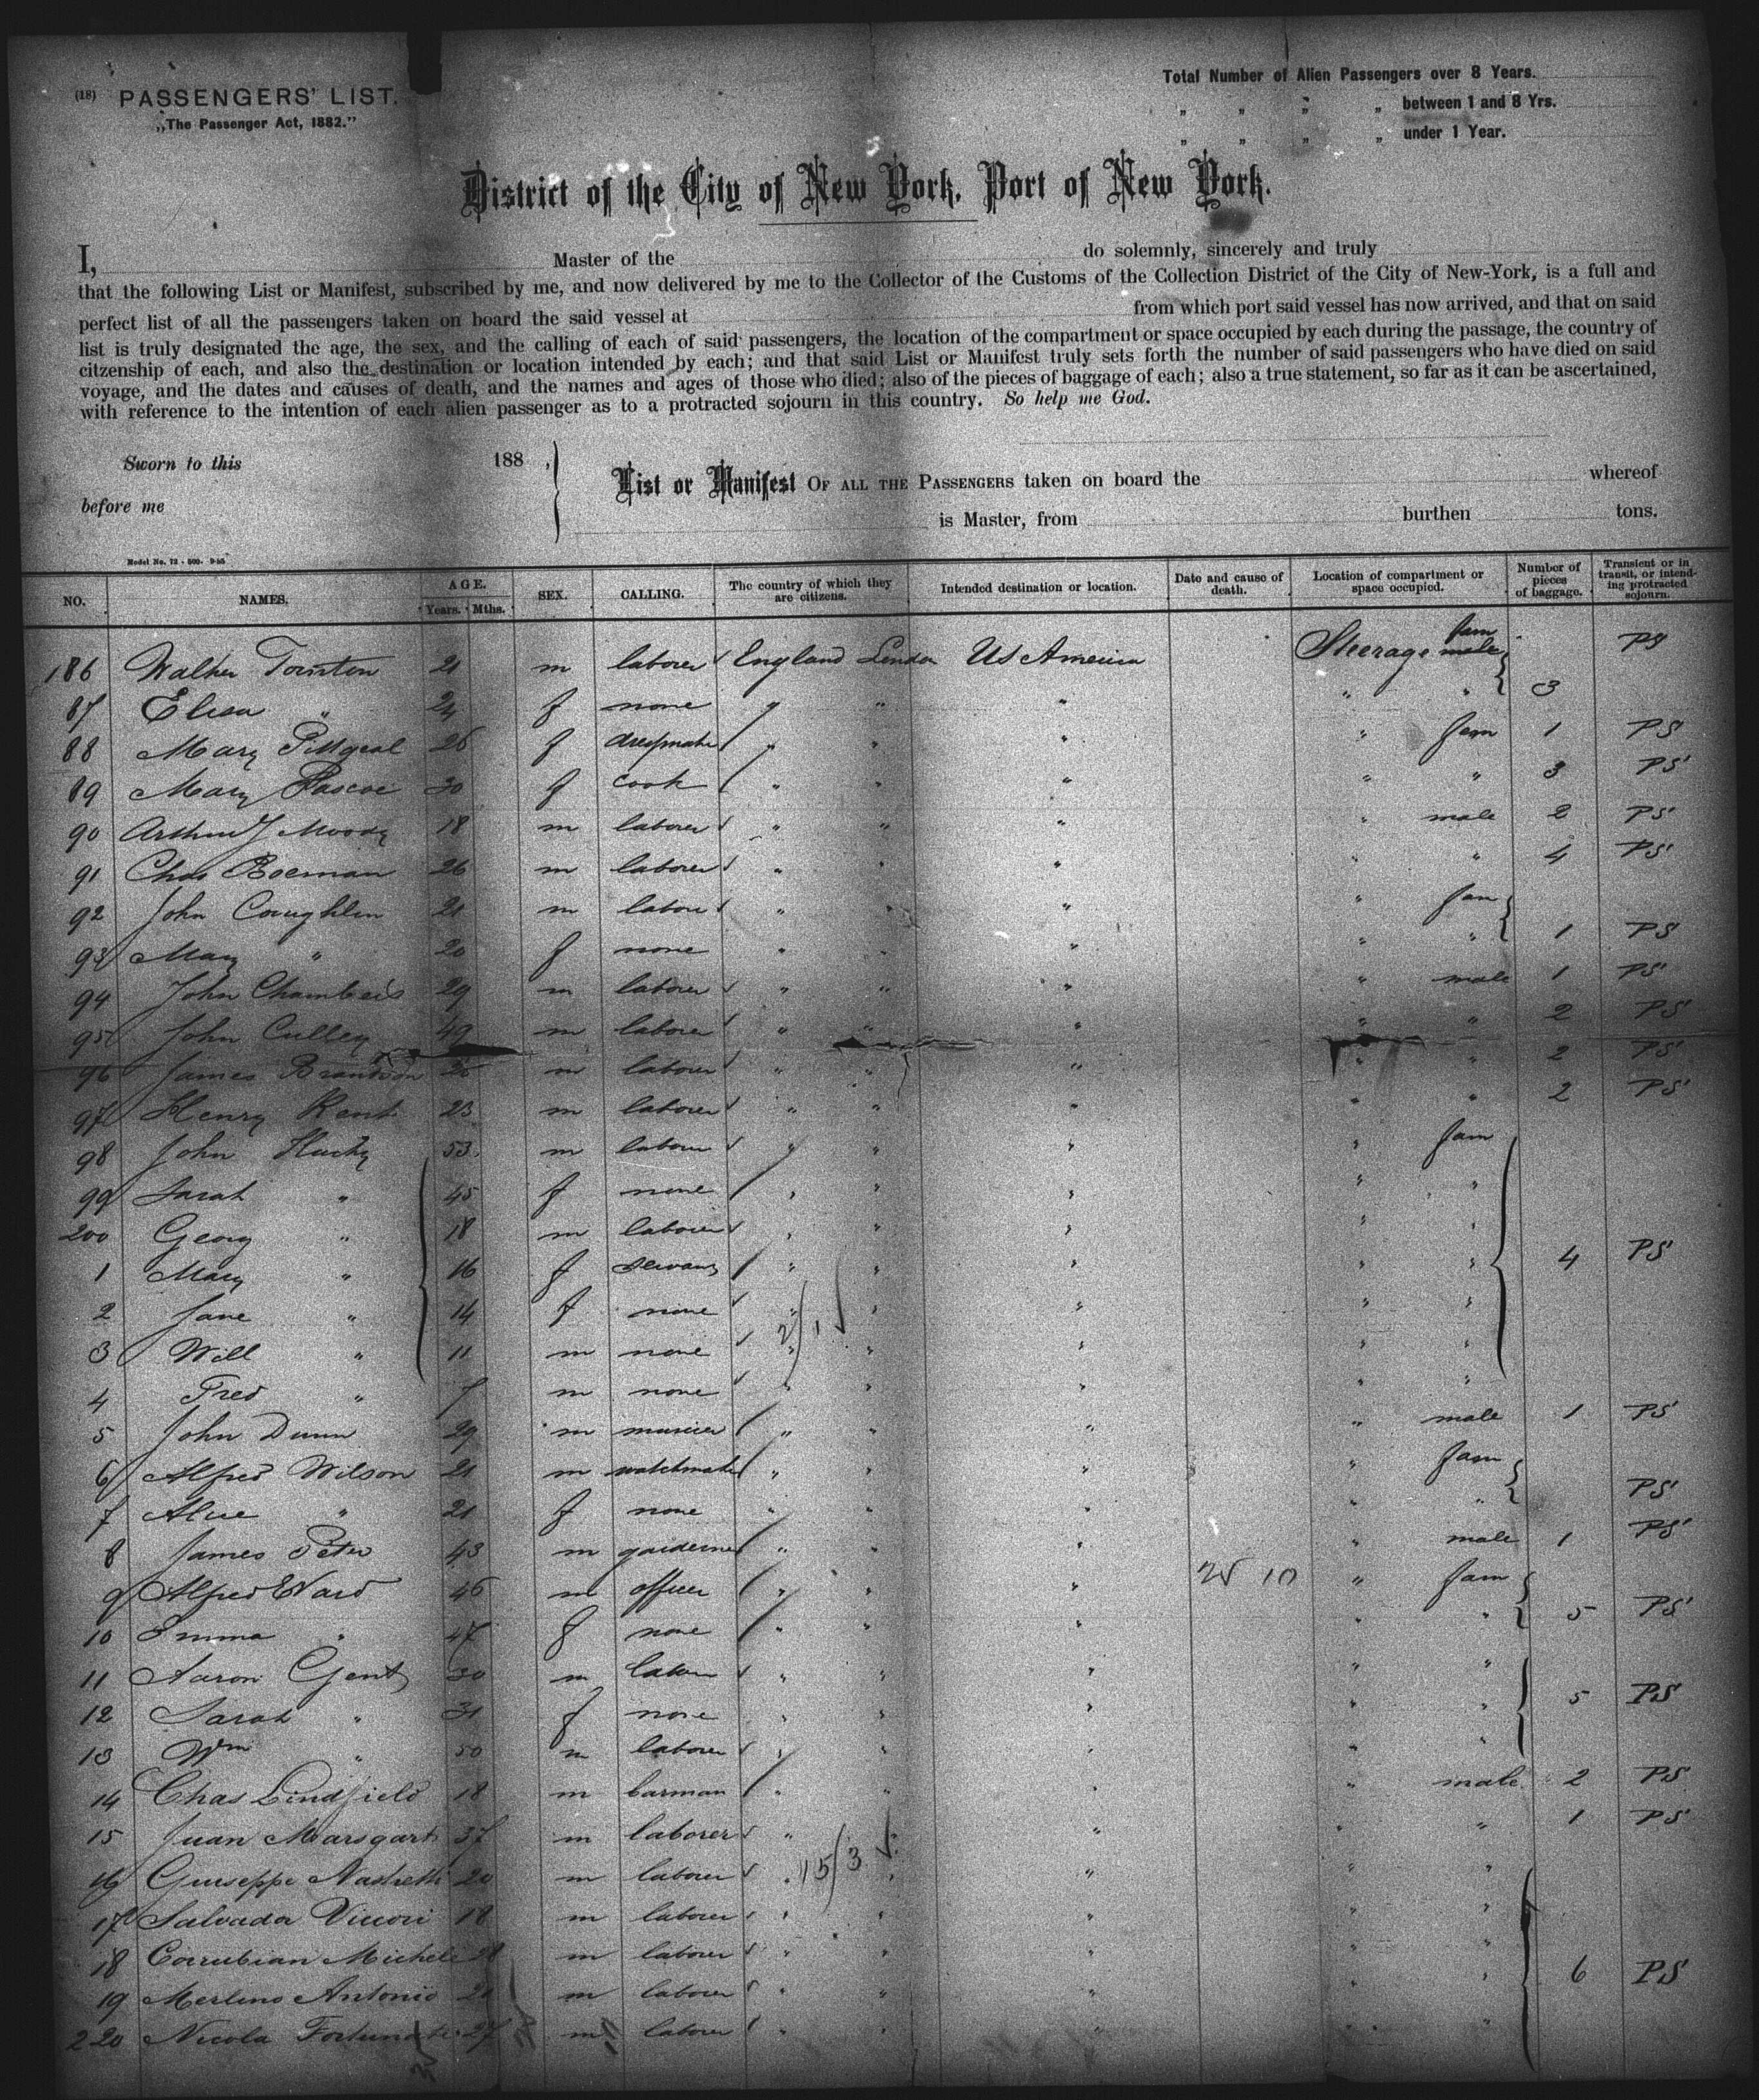 (18) PASSENGERS' LIST.
„The Passenger Act, 1882."
Total Number of Alien Passengers over 8 Years.
„ „ „ „ between 1 and 8 Yrs.
„ „ „ „ under 1 Year.
District of the City of New York, Port of New York.
I, Master of the do solemnly, sincerely and truly
that the following List or Manifest, subscribed by me, and now delivered by me to the Collector of the Customs of the Collection District of the City of New-York, is a full and
perfect list of all the passengers taken on board the said vessel at from which port said vessel has now arrived, and that on said
list is truly designated the age, the sex, and the calling of each of said passengers, the location of the compartment or space occupied by each during the passage, the country of
citzenship of each, and also the destination or location intended by each; and that said List or Manifest truly sets forth the number of said passengers who have died on said
voyage, and the dates and causes of death, and the names and ages of those who died; also of the pieces of baggage of each; also a true statement, so far as it can be ascertained,
with reference to the intention of each alien passenger as to a protracted sojourn in this country. So help me God.
Sworn to this 188 ,
before me
List or Manifest OF ALL THE PASSENGERS taken on board the whereof
is Master, from burthen tons.
Model No. 72 - 500-
NO. NAMES. AGE. Years. Mths. SEX. CALLING. The country of which they are citizens. Intended destination or location. Date and cause of death. Location of compartment or space occupied. Number of pieces of baggage. Transient or in transit, or intending protracted sojourn.
186 Walter Tornton 21 m laborer England London US America Steerage fam PS
87 Elisa " 24 f none " " " " " 3
88 Mary 26 f " " " " fam 1 PS
89 Mary Pascoe 30 f cook " " " " " 3 PS
90 Arthur J Moody 18 m laborer " " " " male 2 PS
91 Chas Boeman 26 m laborer " " " " " 4 PS
92 John Coughlin 21 m labore " " " " fam
93 Mary " 20 f none " " " " " 1 PS
94 John Chambers 29 m laborer " " " " male 1 PS
95 John Culley 49 m laborer " " " " " 2 PS
96 James 25 m laborer " " " " " 2 PS
97 Henry Kent 23 m laborer " " " " " 2 PS
98 John 53 m laborer " " " " fam
99 Sarah " 45 f none " " " " "
200 Georg " 18 m laborer " " " " "
1 Mary " 16 f servant " " " " " 4 PS
2 Jane " 14 f none " " " " "
3 Will " 11 m none " " " " "
4 Fred " 7 m none " " " " "
5 John Dunn 29 m " " " " male 1 PS
6 Alfred Wilson 21 m watchmaker " " " " fam
7 Alice " 21 f none " " " " " PS
8 James Peter 43 m gardener " " " " male 1 PS
9 Alfred Ward 46 m officer " " " 25 10 " fam
10 Emma " 47 f none " " " " " 5 PS
11 Aaron Gent 30 m labor " " " " "
12 Sarah " 31 f none " " " " " 5 PS
13 Wm " 50 m laborer " " " " "
14 Chas Lindfield 18 m barman " " " " male 2 PS
15 Juan Marsgart 37 m laborer " " " " " 1 PS
16 Giuseppe 20 m laborer " " " "
17 Salvada 18 m laborer " " " " "
18 Corrubian Michele 28 m laborer " " " "
19 Merlino Antonio m laborer " " " " " 6 PS
220 Nicola Fortunate 27 m laborer " " " " "